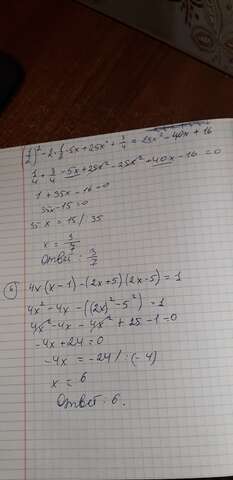 (1/2)² - 2 · 1/2 · 5x + 25x² + 3/4 = 25x² - 40x + 16
1/4 + 3/4 - 5x + 25x² - 25x² + 40x - 16 = 0
1 + 35x - 16 = 0
35x - 15 = 0
35 x = 15 / 35
x = 3/7
Ответ: 3/7
4x (x - 1) - (2x + 5)(2x - 5) = 1
4x² - 4x - ((2x)² - 5²) = 1
4x² - 4x - 4x² + 25 - 1 = 0
-4x + 24 = 0
-4x = -24 / : (- 4)
x = 6
Ответ: 6.